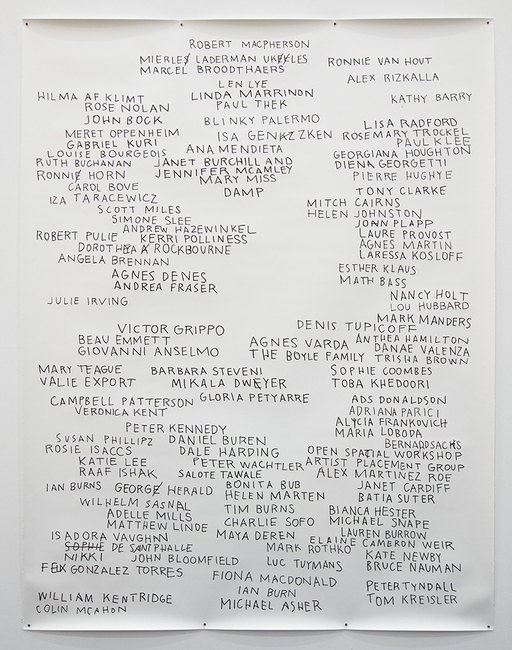 ROBERT MACPHERSON
MIERLES LADERMAN UKELES RONNIE VAN HOUT
MARCEL BROODTHAERS
ALEX RIZKALLA
LEN LYE
HILMA AF KLIMT LINDA MARRINON KATHY BARRY
ROSE NOLAN PAUL THEK
JOHN BOCK BLINKY PALERMO LISA RADFORD
MERET OPPENHEIM ISA GENKZZKEN ROSEMARY TROCKEL
GABRIEL KURI PAUL KLEE
LOUISE BOURGEOIS ANA MENDIETA GEORGIANA HOUGHTON
RUTH BUCHANAN JANET BURCHILL AND DIENA GEORGETTI
RONNIE HORN JENNIFER MCAMLEY PIERRE HUGHYE
CAROL BOVE MARY MISS
DAMP TONY CLARKE
IZA TARACEWICZ MITCH CAIRNS
SCOTT MILES HELEN JOHNSTON
SIMONE SLEE JOHN PLAPP
ANDREW HAZEWINKEL LAURE PROVOST
ROBERT PULIE KERRI POLLINESS AGNES MARTIN
DOROTHEA ROCKBOURNE LARESSA KOSLOFF
ANGELA BRENNAN ESTHER KLAUS
AGNES DENES MATH BASS
ANDREA FRASER NANCY HOLT
JULIE IRVING LOU HUBBARD
MARK MANDERS
VICTOR GRIPPO DENIS TUPICOFF
BEAU EMMETT AGNES VARDA ANTHEA HAMILTON
GIOVANNI ANSELMO THE BOYLE FAMILY DANAE VALENZA
TRISHA BROWN
MARY TEAGUE BARBARA STEVENI SOPHIE COOMBES
VALIE EXPORT MIKALA DWEYER TOBA KHEDOORI
CAMPBELL PATTERSON GLORIA PETYARRE ADS DONALDSON
VERONICA KENT ADRIANA PARICI
PETER KENNEDY ALYCIA FRANKOVICH
MARIA LOBODA
SUSAN PHILLIPZ DANIEL BUREN BERNADD SACHS
ROSIE ISACCS DALE HARDING OPEN SPATIAL WORKSHOP
KATIE LEE PETER WACHTLER ARTIST PLACEMENT GROUP
RAAF ISHAK SALOTE TAWALE ALEX MARTINEZ ROE
IAN BURNS GEORGE HERALD BONITA BUB JANET CARDIFF
HELEN MARTEN BATIA SUTER
WILHELM SASNAL TIM BURNS BIANCA HESTER
ADELLE MILLS CHARLIE SOFO MICHAEL SNAPE
MATTHEW LINDE MAYA DEREN LAUREN BURROW
ISADORA VAUGHN ELAINE CAMERON WEIR
SOPHIE DE SAINT PHALLE MARK ROTHKO KATE NEWBY
NIKKI JOHN BLOOMFIELD LUC TUYMANS BRUCE NAUMAN
FELIX GONZALEZ TORRES FIONA MACDONALD
IAN BURN PETER TYNDALL
WILLIAM KENTRIDGE MICHAEL ASHER TOM KREISLER
COLIN MCAHON